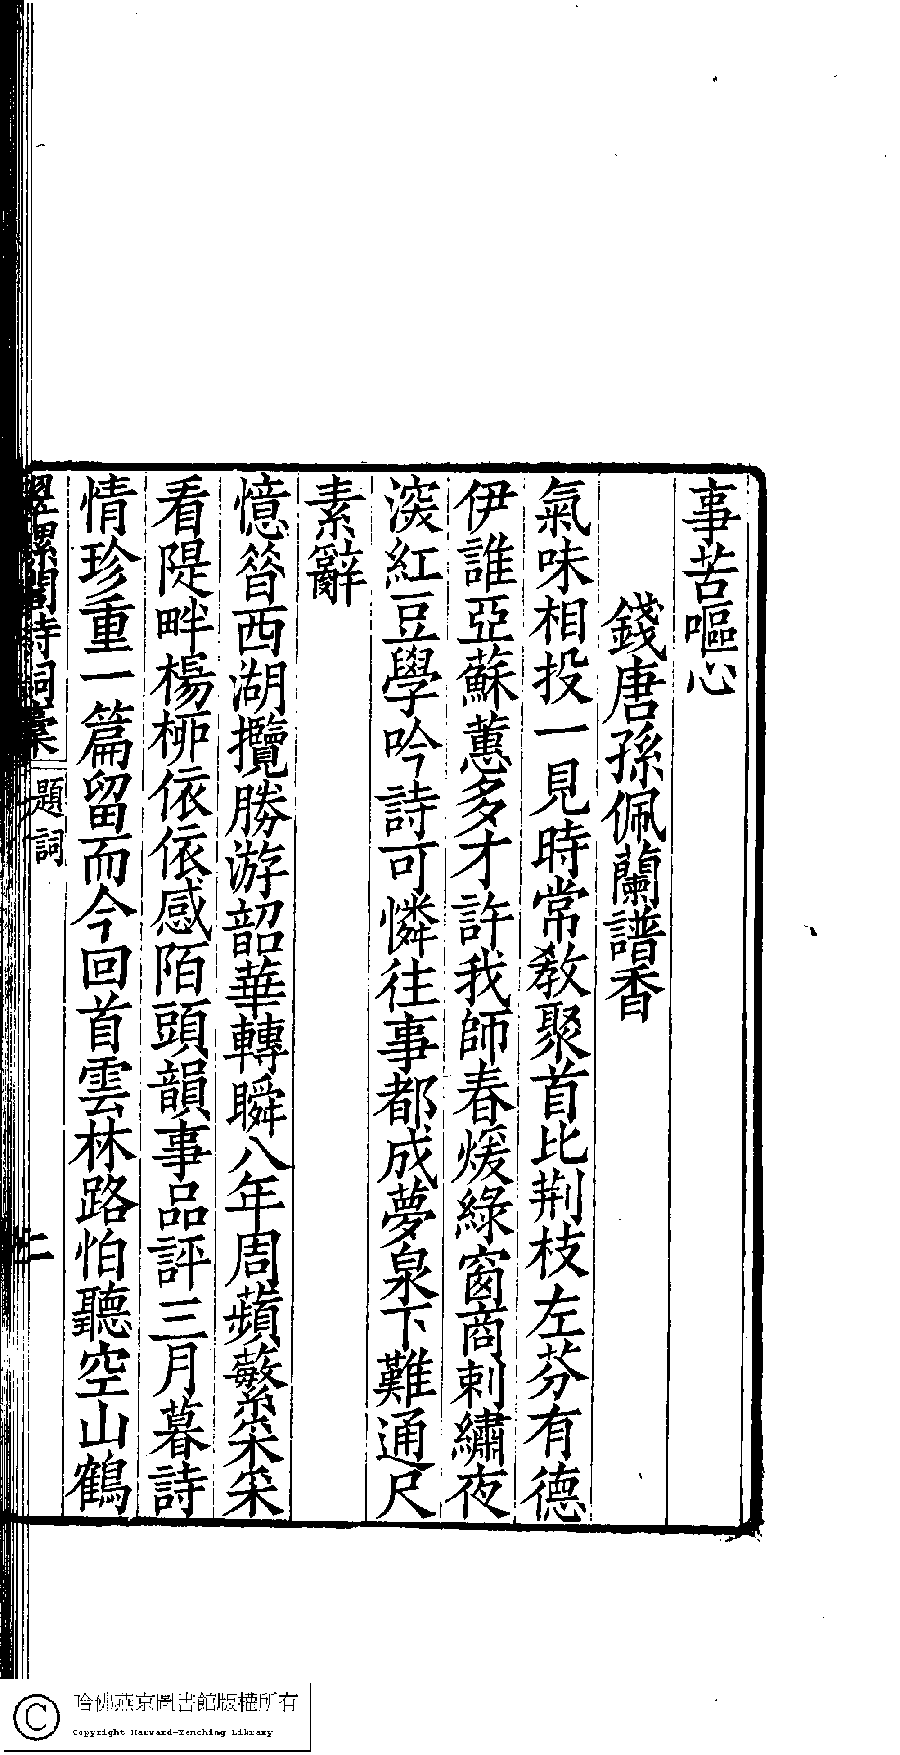 事苦嘔心
錢唐孫佩蘭譜香
氣味相投一見時常教聚首比荆枝左芬有德
伊誰亞蘇蕙多才許我師春煖綠窗商刺繡夜
深紅豆學吟詩可憐往事都成夢泉下難通尺
素辭
憶昝西湖攬勝游韶華轉瞬八年周蘋蘩寀采
看隄畔楊桺依依感陌頭韻事品評三月暮詩
情珍重一篇留而今回首雲林路怕聽空山鶴
翠螺閣詩詞稾
題詞
二
哈佛燕京圖書館版權所有
Copyright Harvard-Yenching Library